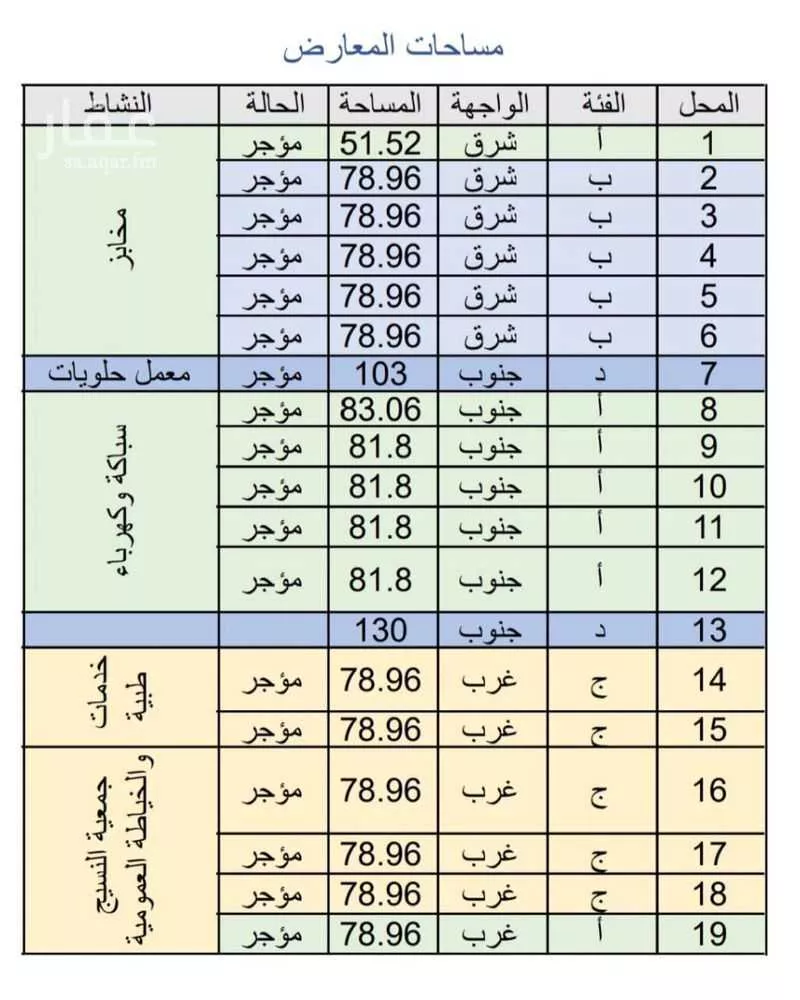 مساحات المعارض
المحل الفئة الواجهة المساحة الحالة النشاط
عقار
sa.aqar.fm
1 أ شرق 51.52 مؤجر
2 ب شرق 78.96 مؤجر
3 ب شرق 78.96 مؤجر
4 ب شرق 78.96 مؤجر
5 ب شرق 78.96 مؤجر
6 ب شرق 78.96 مؤجر
مخابز
7 د جنوب 103 مؤجر معمل حلويات
8 أ جنوب 83.06 مؤجر
9 أ جنوب 81.8 مؤجر
10 أ جنوب 81.8 مؤجر
11 أ جنوب 81.8 مؤجر
12 أ جنوب 81.8 مؤجر
سباكة وكهرباء
13 د جنوب 130
14 ج غرب 78.96 مؤجر
15 ج غرب 78.96 مؤجر
خدمات
طبية
16 ج غرب 78.96 مؤجر
17 ج غرب 78.96 مؤجر
18 ج غرب 78.96 مؤجر
19 أ غرب 78.96 مؤجر
جمعية النسيج
والخياطة العمومية